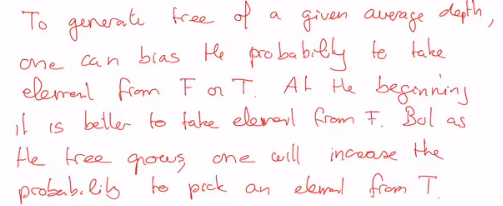 To generate tree of a given average depth,
one can bias the probability to take
element from F or T. At the beginning
it is better to take element from F. But as
the tree grows, one will increase the
probability to pick an element from T.